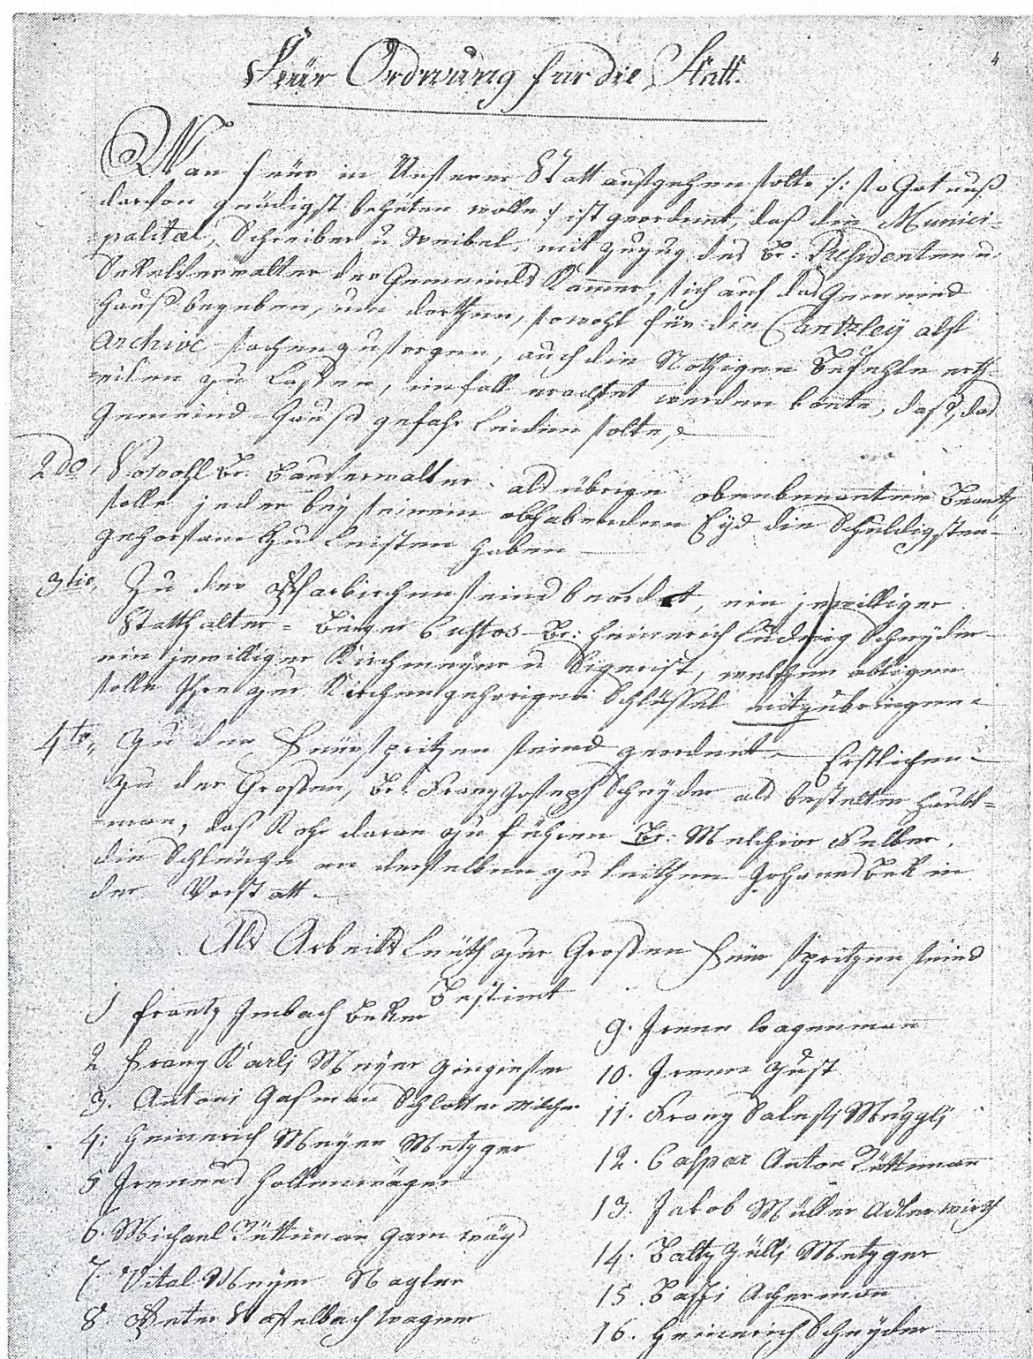 4
Feür Ordnung für die Statt.
Wan feür in Unserer Statt ausgehen solte /: so Got unß
darfon gnädigst behüten wolle :/ ist geordnet, daß die Munici-
palitæt, Schreiber u Weibel, mit zuzug des Br: Presidenten u.
Sekelverwalter der Gemeinds Kamer, sich auf das Gemeind
Hauß begeben, um dorthen, sowohl für die Cantzleÿ alß
Archive sachen zu sorgen, auch die Nothigen Befehle erth-
eilen zu Lassen, imfall erachtet werden konte, daß das
Gemeind Hauß gefahr Leiden solte,
2do, Sowohl Br. Bauverwalter als übrige obenbenanten Beamte
solle jeder beÿ seinem obhabenden Eÿd die Schuldigsten
gehorsam zu Leisten haben
3tio, Zu der Pfarkirchen seind beordret, ein jewilliger
Statthalter = Bürger Custos Br: Heinerich Ludwig Schnÿder
ein jewilliger Kirchmeÿer u Sigerist, welchen obligen
solle Ihre zur Kirchen gehörigen Schlüssel mitzubringen.
4to, Zu den Feürspritzen seind geordnet. Erstlichen
zu der Großen, Br. Franz Joseph Schnÿder als bestelter Haubt-
man, daß Rohr daran zu führen Br: Melchior Felber.
die Schleüche an derselben zu leithen Johanes Bek in
der Vorstatt.
Als Arbeits Leüth zur Großen Feür spritzen seind
Bestimt
1 Frantz Imbach Beker
2 Franz Karli Meÿer
3. Antoni Gasman Schlosser
4: Heinerich Meÿer Metzger
5 Ireneus Hollenwäger
6. Michael Rüttiman
7. Vital Meÿer Nagler
8. Peter Wagner
9. Irene Wagenman
10. Irene Zust
11. Franz Salesi Muggli
12. Caspar Anton Rüttiman
13. Jakob Müller Adlerwirth
14. Baltz Zülli Metzger
15. Basti Acherman
16. Heinerich Schnÿder